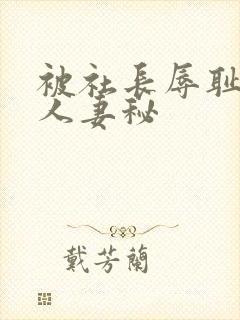 被社長辱耻
人妻秘
戴芳蘭